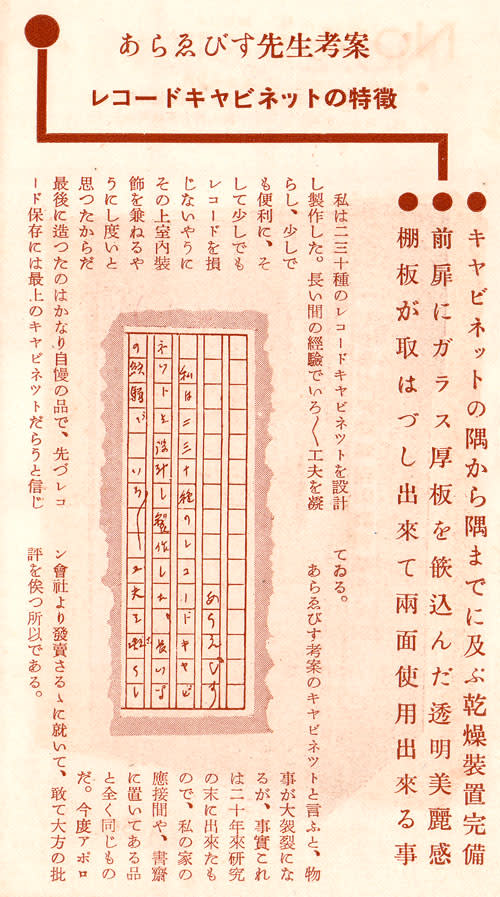 あらゑびす先生考案
レコードキャビネットの特徴
●キャビネットの隅から隅までに及ぶ乾燥装置完備
●前扉にガラス厚板を嵌込んだ透明美麗感
●棚板が取はづし出來て兩面使用出來る事
私は二三十種のレコードキャビネツトを設計
し製作した。長い間の經驗でいろ〱工夫を凝
らし、少しで
も便利に、そ
して少しでも
レコードを損
じないやうに
その上室內裝
飾を兼ねるや
うにし度いと
思つたからだ
最後に造つたのはかなり自慢の品で、先づレコ
ード保存には最上のキャビネツトだらうと信じ
てゐる。
あらゑびす考案のキャビネツトと言ふと、物
事が大袈裟にな
るが、事實これ
は二十年來硏究
の末に出來たも
ので、私の家の
應接間や、書齋
に置いてある品
と全く同じもの
だ。今度アポロ
ン會社より發賣さるゝに就いて、敢て大方の批
評を俟つ所以である。
あらえびす
私は二三十種のレコードキヤビ
ネツトを設計し製作した。長い間
の経験でいろ〱工夫を凝らし